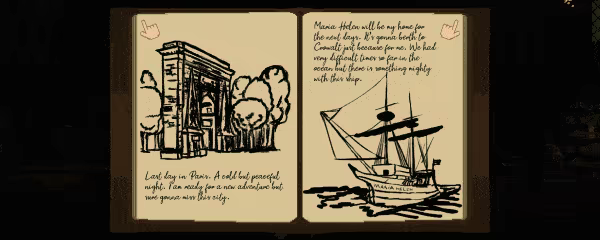 Last day in Paris. A cold but peaceful
night. I am ready for a new adventure but
sure gonna miss this city.
Maria Helen will be my home for
the next days. It's gonna berth to
Crowalt just because for me. We had
very difficult times so far in the
ocean but there is something mighty
with this ship.
MARIA HELEN